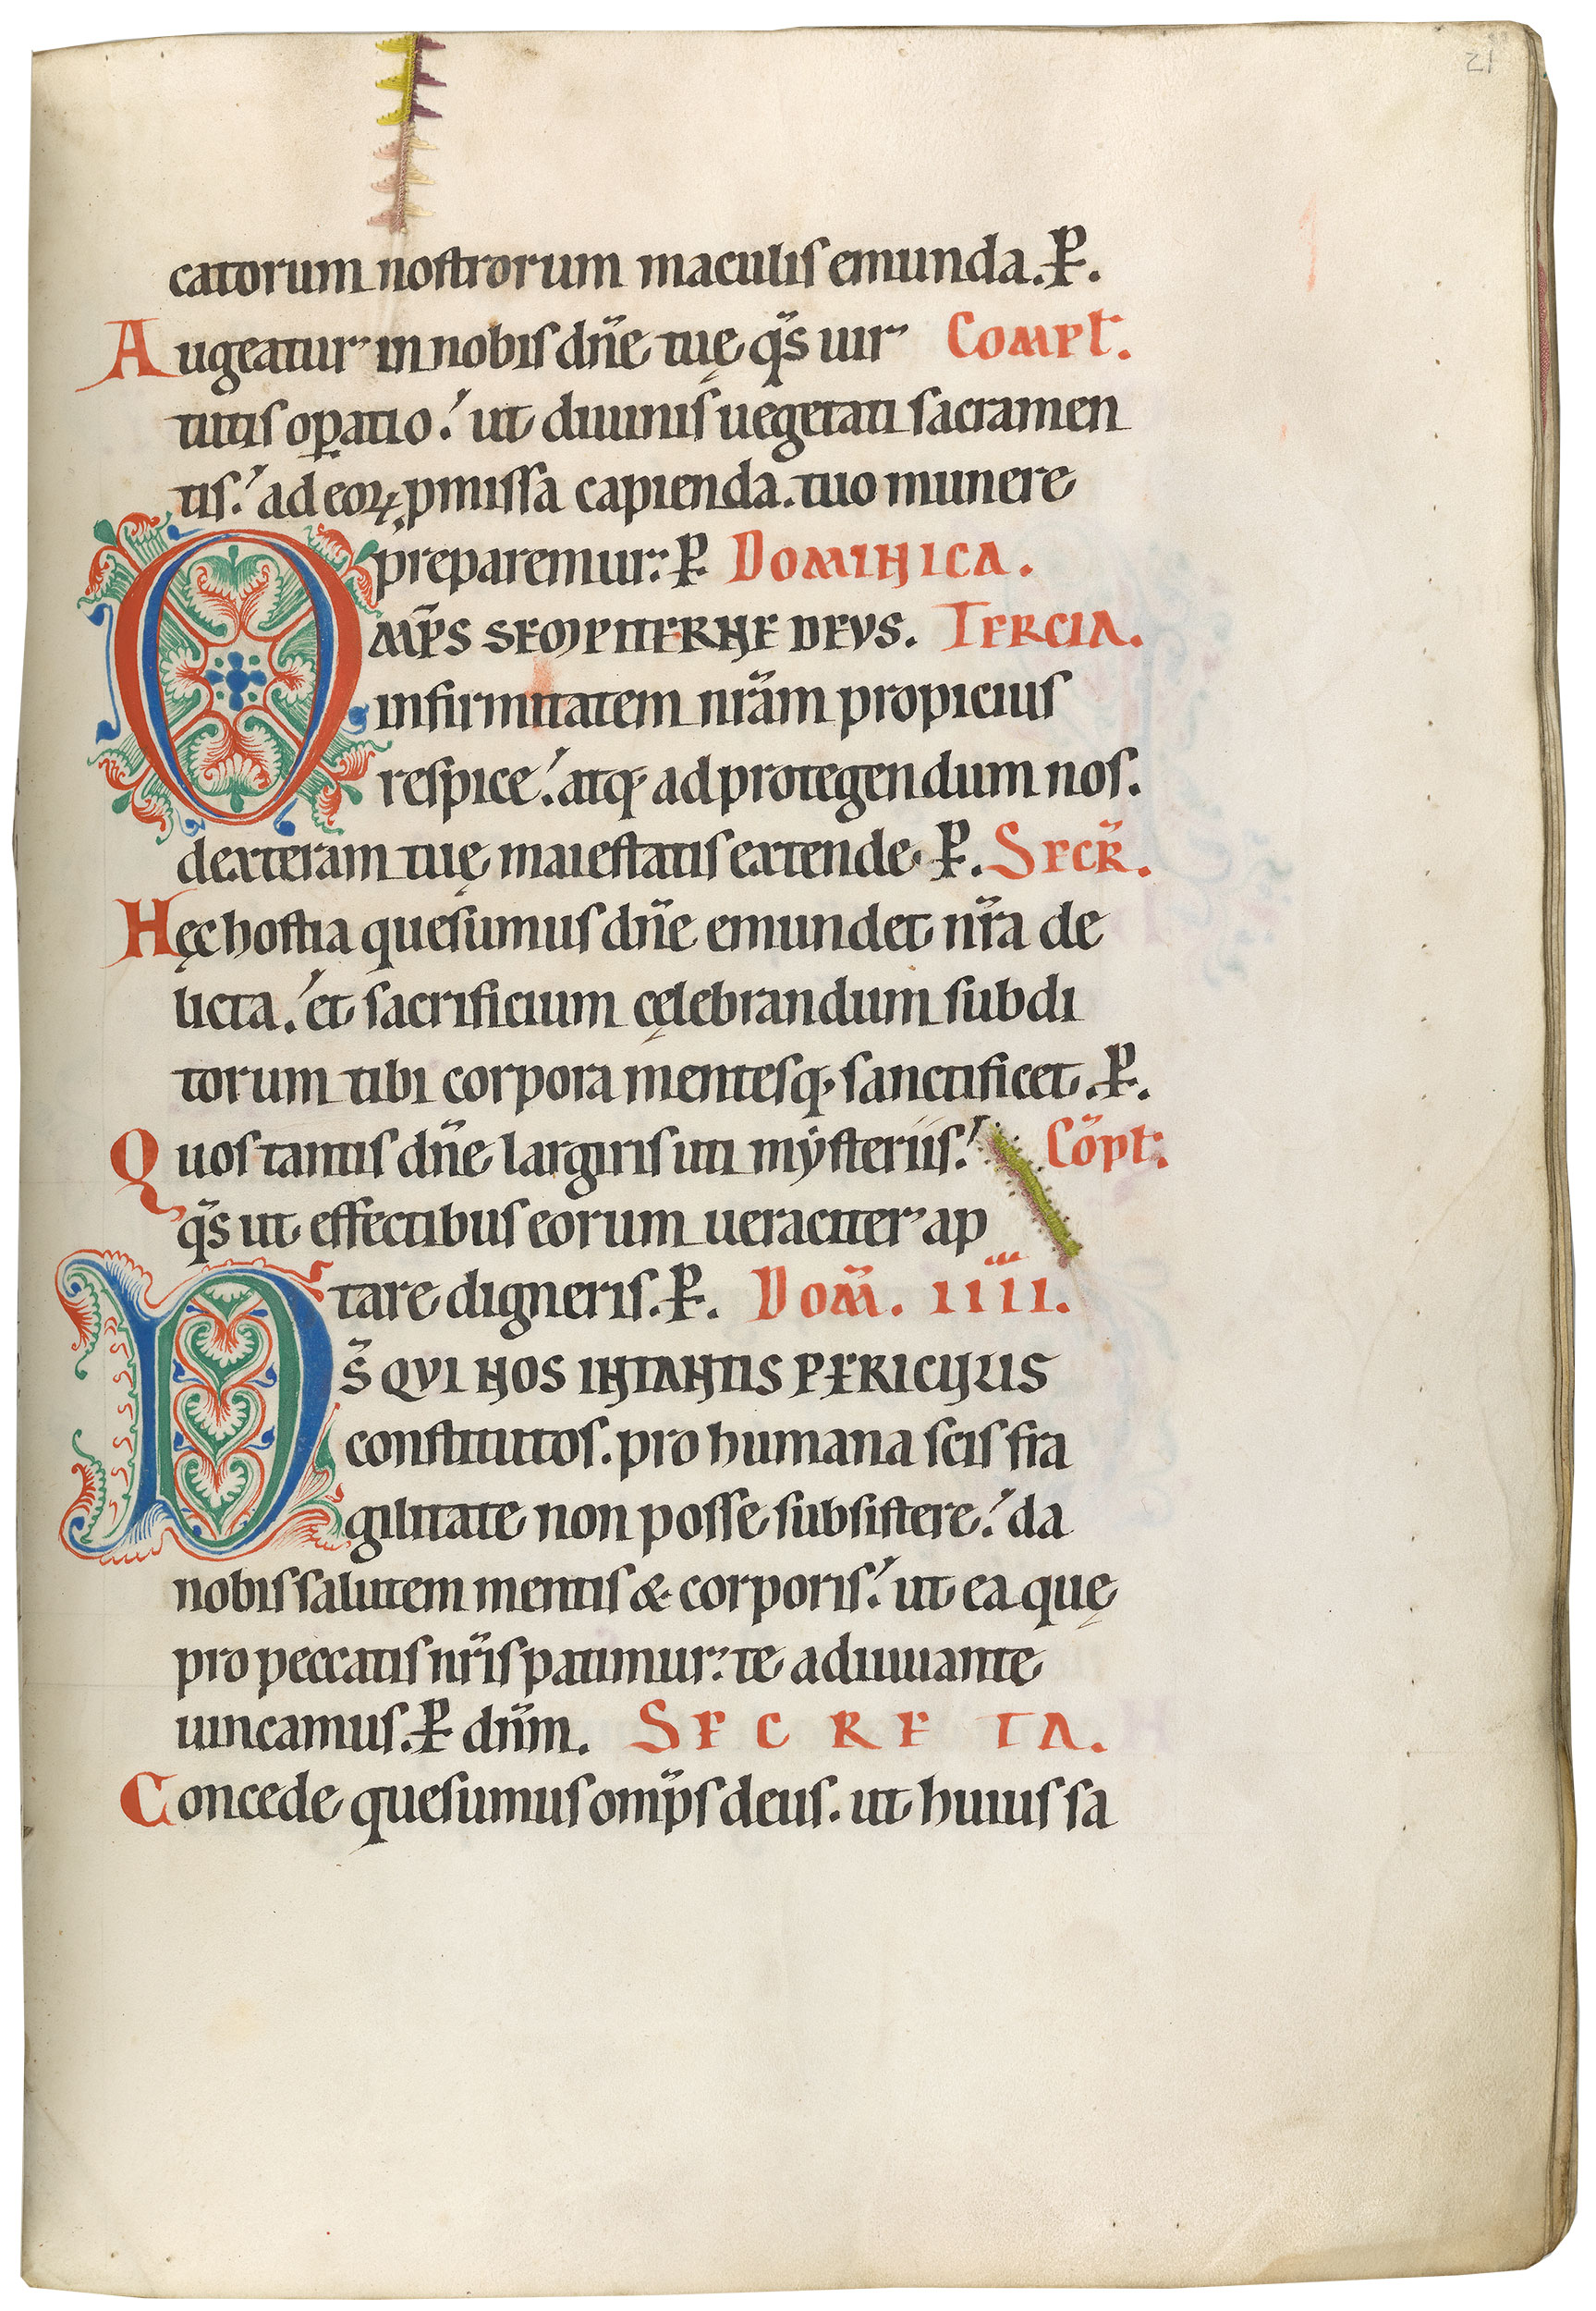 21
catorum nostrorum maculis emunda. P̄.
Augeatur in nobis dn̄e tuę q̄s uir Compt.
tutis oꝑatio. ut diuinis uegetati sacramen
tis. ad eoꝝ ꝓmissa capienda. tuo munere
preparemur. P̄. DOMINICA.
OMP̄S SEMPITERNE DEVS. TERCIA.
infirmitatem nr̄am propicius
respice. atq; ad protegendum nos.
dexteram tuę maiestatis extende. P̄. SECR̄.
Hęc hostia quesumus dn̄e emundet nr̄a de
licta. et sacrificium cęlebrandum subdi
torum tibi corpora mentesq; sanctificet. P̄.
Quos tantis dn̄e largiris uti mẏsteriis. Cōpt.
q̄s ut effectibus eorum ueraciter ap
tare digneris. P̄. DOM̄. IIII.
DS̄ QVI NOS INTANTIS PERICULIS
constitutos. pro humana scis fra
gilitate non posse subsistere. da
nobis salutem mentis & corporis. ut ea quę
pro peccatis nr̄is patimur. te adiuuante
uincamus. P̄ dn̄m. SECRETA.
Concede quesumus omp̄s deus. ut huius sa